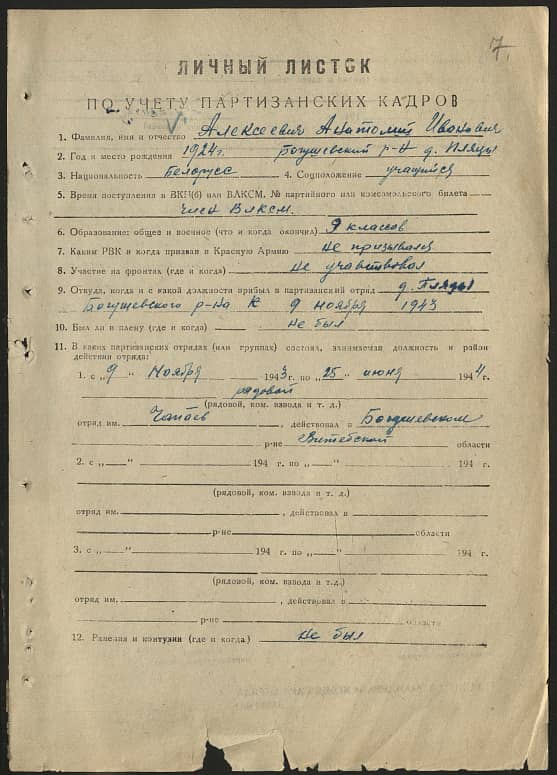 7.
ЛИЧНЫЙ ЛИСТОК
ПО УЧЕТУ ПАРТИЗАНСКИХ КАДРОВ
1. Фамилия, имя и отчество Алексеевич Анатолий Иванович
2. Год и место рождения 1924 г. Богушевский р-н д. Пляцы
3. Национальность Белорусс 4. Соцположение учащийся
5. Время поступления в ВКП(б) или ВЛКСМ. № партийного или комсомольского билета
член ВЛКСМ.
6. Образование: общее и военное (что и когда окончил) 9 классов
7. Каким РВК и когда призван в Красную Армию не призывался
8. Участие на фронтах (где и когда) не участвовал
9. Откуда, когда и с какой должности прибыл в партизанский отряд д. Пляцы
Богушевского р-на 9 ноября 1943
10. Был ли в плену (где и когда) не был
11. В каких партизанских отрядах (или группах) состоял, занимаемая должность и район
действия отряда:
1. с „9" Ноября 1943 г. по „25" июня 1944 г.
рядовой
(рядовой, ком. взвода и т. д.)
отряд им. Чапаев, действовал в Богушевском
р-не Витебской области
2. с „—" 194 г. по „—" 194 г.
(рядовой, ком. взвода и т. д.)
отряд им. , действовал в
р-не области
3. с „—" 194 г. по „—" 194 г.
(рядовой, ком. взвода и т.д.)
отряд им. , действовал в
р-не области
12. Ранения и контузии (где и когда) не был